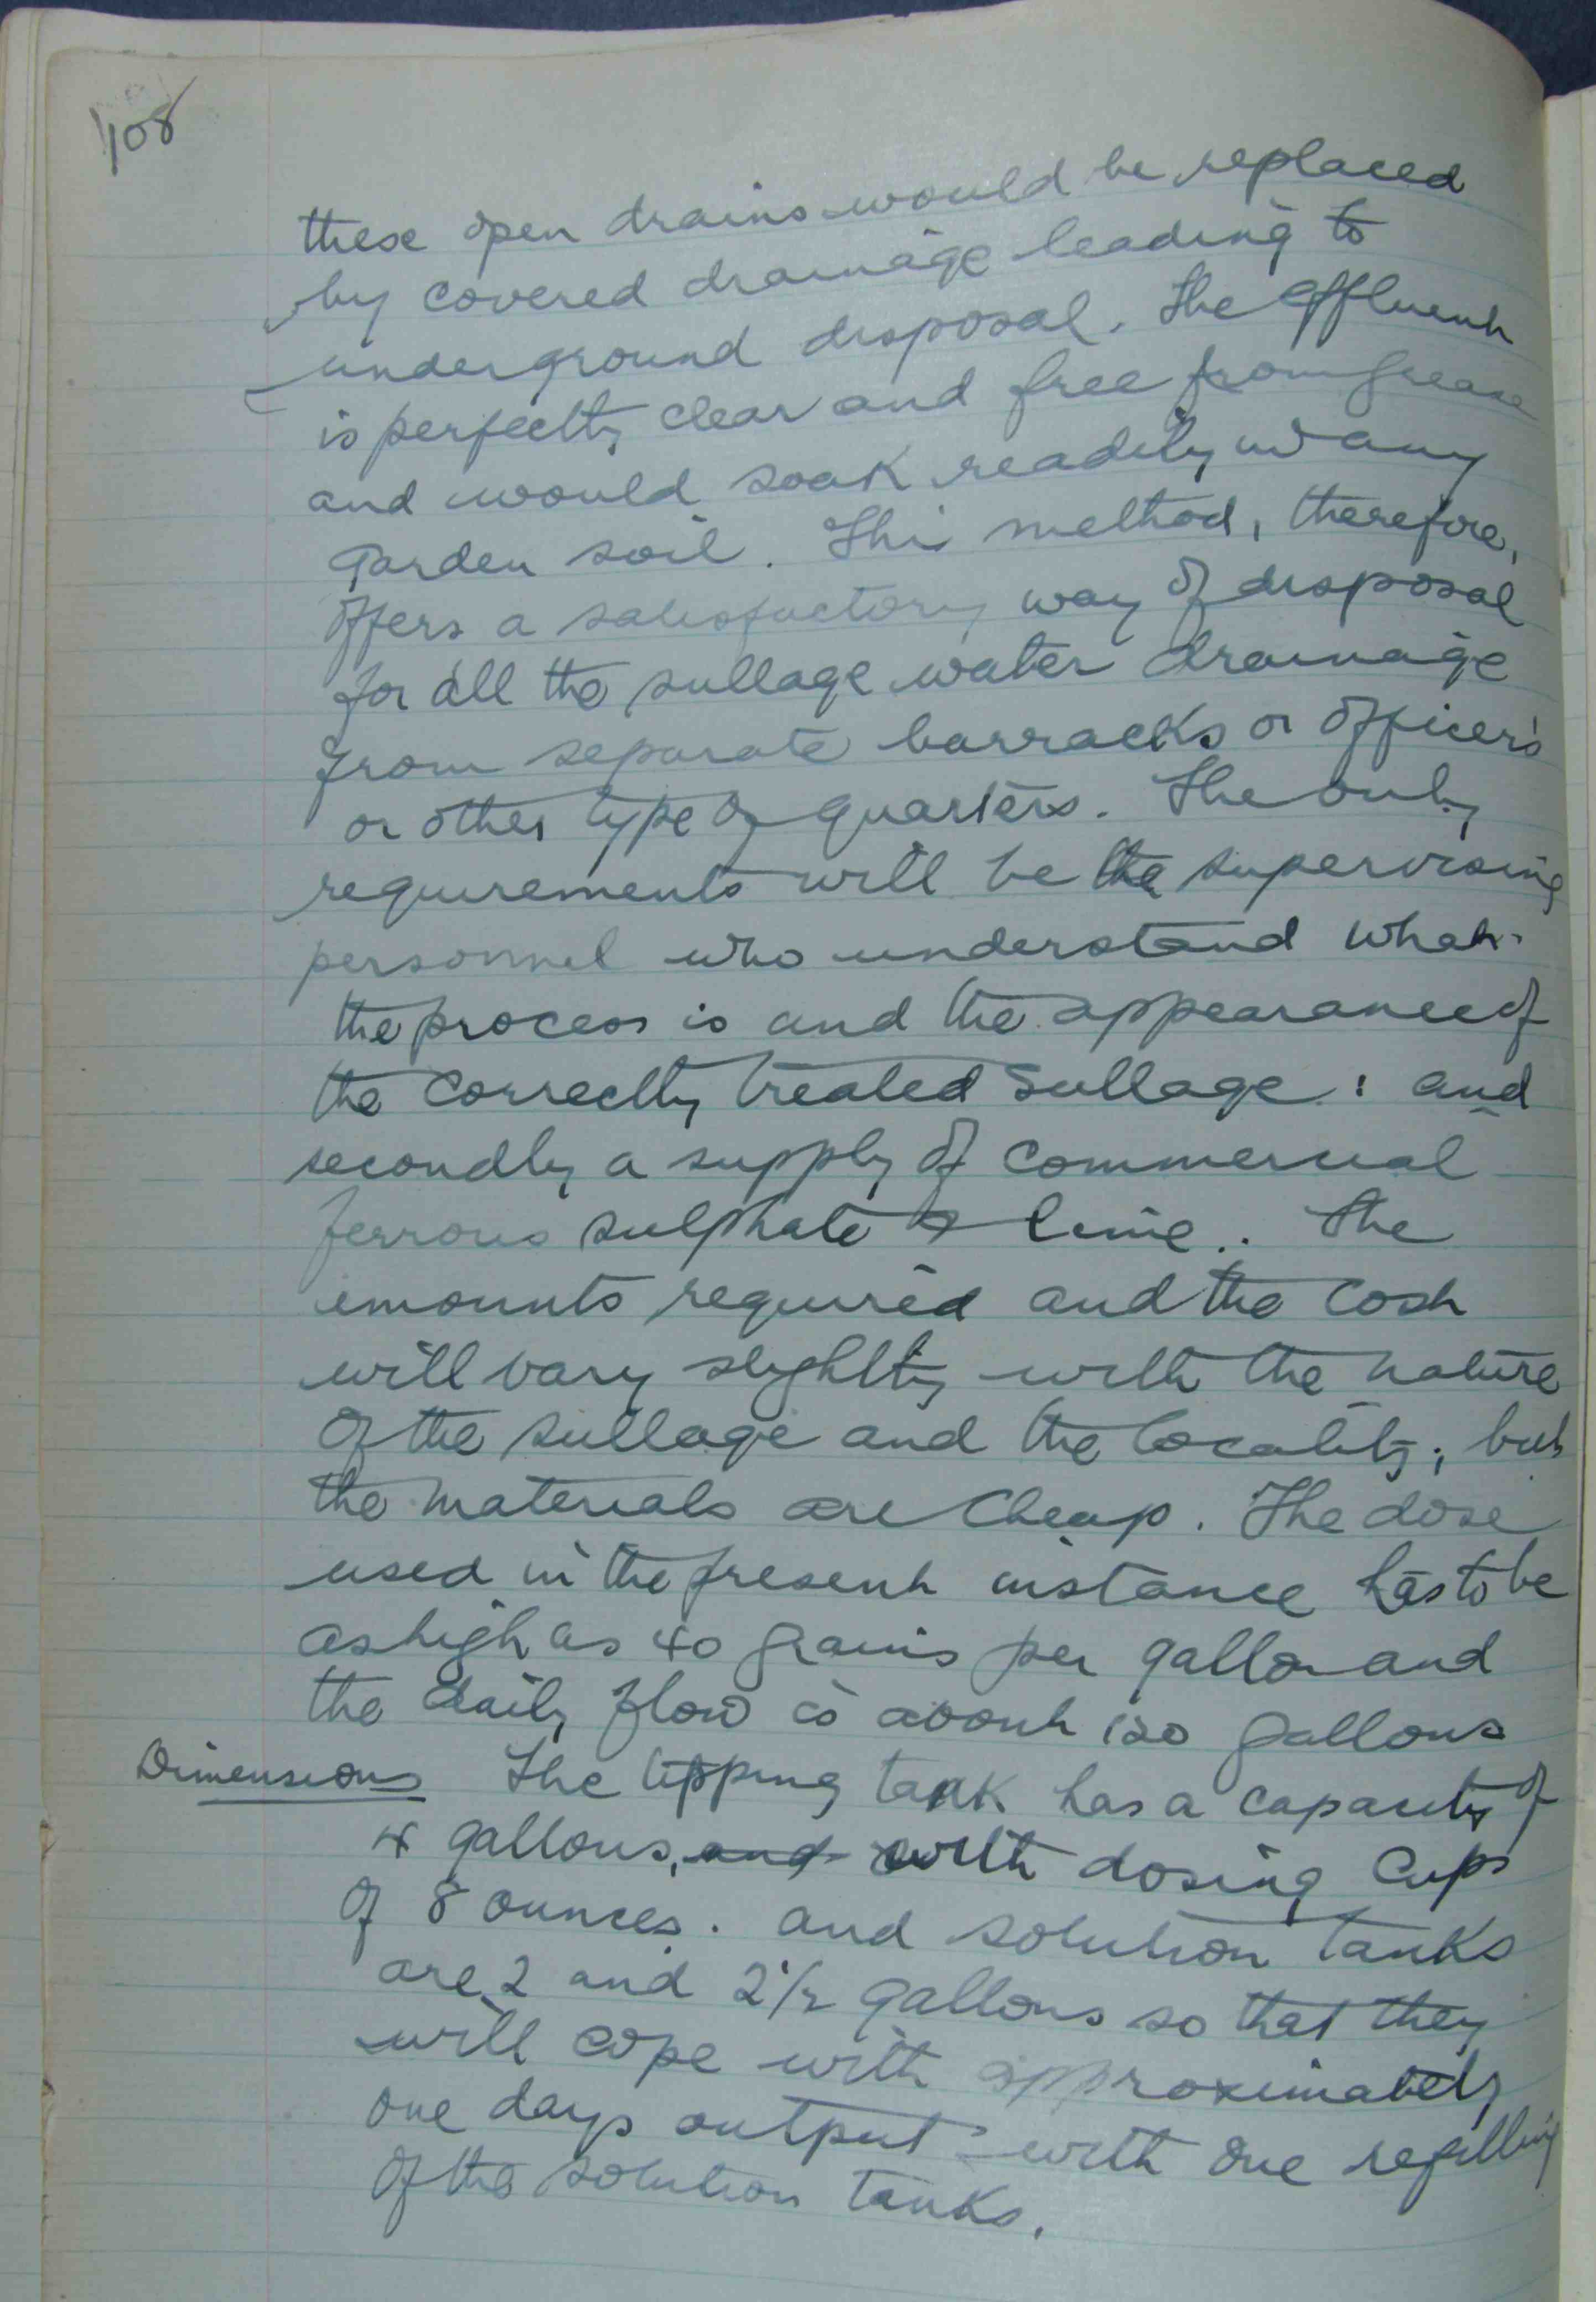 108
these open drains would be replaced
by covered drainage leading to
underground disposal. The effluent
is perfectly clear and free from grease
and would soak readily into any
garden soil. This method, therefore,
offers a satisfactory way of disposal
for all the sullage water drainage
from separate barracks or officer's
or other type of quarters. The only
requirements will be the supervising
personnel who understand what
the process is and the appearance of
the correctly treated sullage: and
secondly a supply of commercial
ferrous sulphate & lime. The
amounts required and the cost
will vary slightly with the nature
of the sullage and the locality; but
the materials are cheap. The dose
used in the present instance has to be
as high as 40 grains per gallon and
the daily flow is about 120 gallons
Dimensions The tipping tank has a capacity of
4 gallons, and with dosing cups
of 8 ounces. and solution tanks
are 2 and 2 1/2 gallons so that they
will cope with approximately
one days output with one refilling
of the solution tanks.